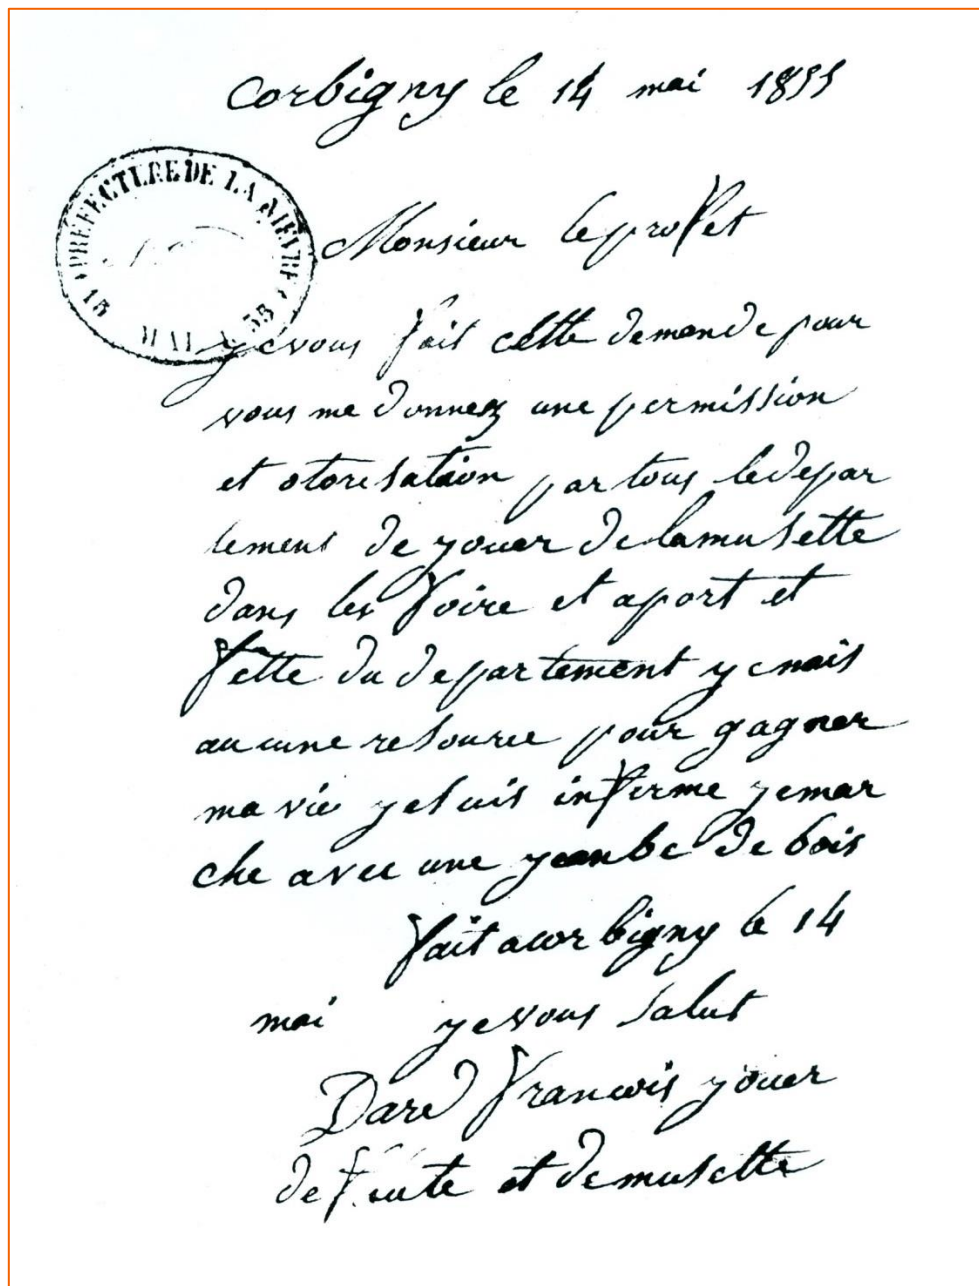 Corbigny le 14 mai 1855
PREFECTURE DE LA NIEVRE
15 MAI 55
Monsieur le profet
ye vous fait cette demande pour
vous me donnez une permission
et otorisation par tous le depar
temens de youer de la musette
dans les foire et aport et
fette du departement ye nais
aucune resource pour gagner
ma vie ye suis inferme ye mar
che avec une yeanbe de bois
fait a corbigny le 14
mai ye vous salut
Daré francois youer
de fleute et de musette